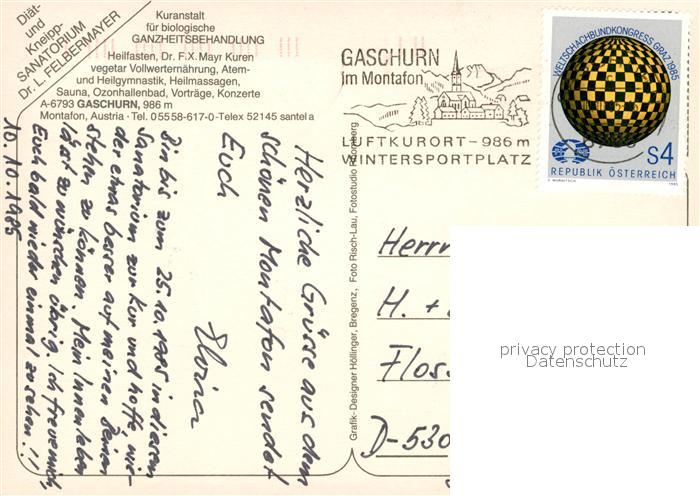 Diät-
und
Kneipp-
SANATORIUM
Dr. L. FELBERMAYER
Kuranstalt
für biologische
GANZHEITSBEHANDLUNG
Heilfasten, Dr. F.X. Mayr Kuren
vegetar Vollwerternährung, Atem-
und Heilgymnastik, Heilmassagen,
Sauna, Ozonhallenbad, Vorträge, Konzerte
A-6793 GASCHURN, 986 m
Montafon, Austria · Tel. 05558-617-0-Telex 52145 santel a
GASCHURN
im Montafon
LUFTKURORT – 986 m
WINTERSPORTPLATZ
WELTSCHACHBUNDKONGRESS GRAZ 1985
S4
REPUBLIK ÖSTERREICH
1985
Herzliche Grüsse aus dem
schönen Montafon sendet
Euch
Bin bis zum 25.10.1985 in diesem
Sanatorium zur Kur und hoffe, wie-
der etwas besser auf meinen Beinen
stehen zu können. Mein Innenleben
lässt zu wünschen übrig. Ich freue mich,
Euch bald wieder einmal zu sehen!!
10.10.1985
Grafik-Designer Höllinger, Bregenz, Foto Risch-Lau, Fotostudio
Herrn
H. +
Flos
D-530
privacy protection
Datenschutz